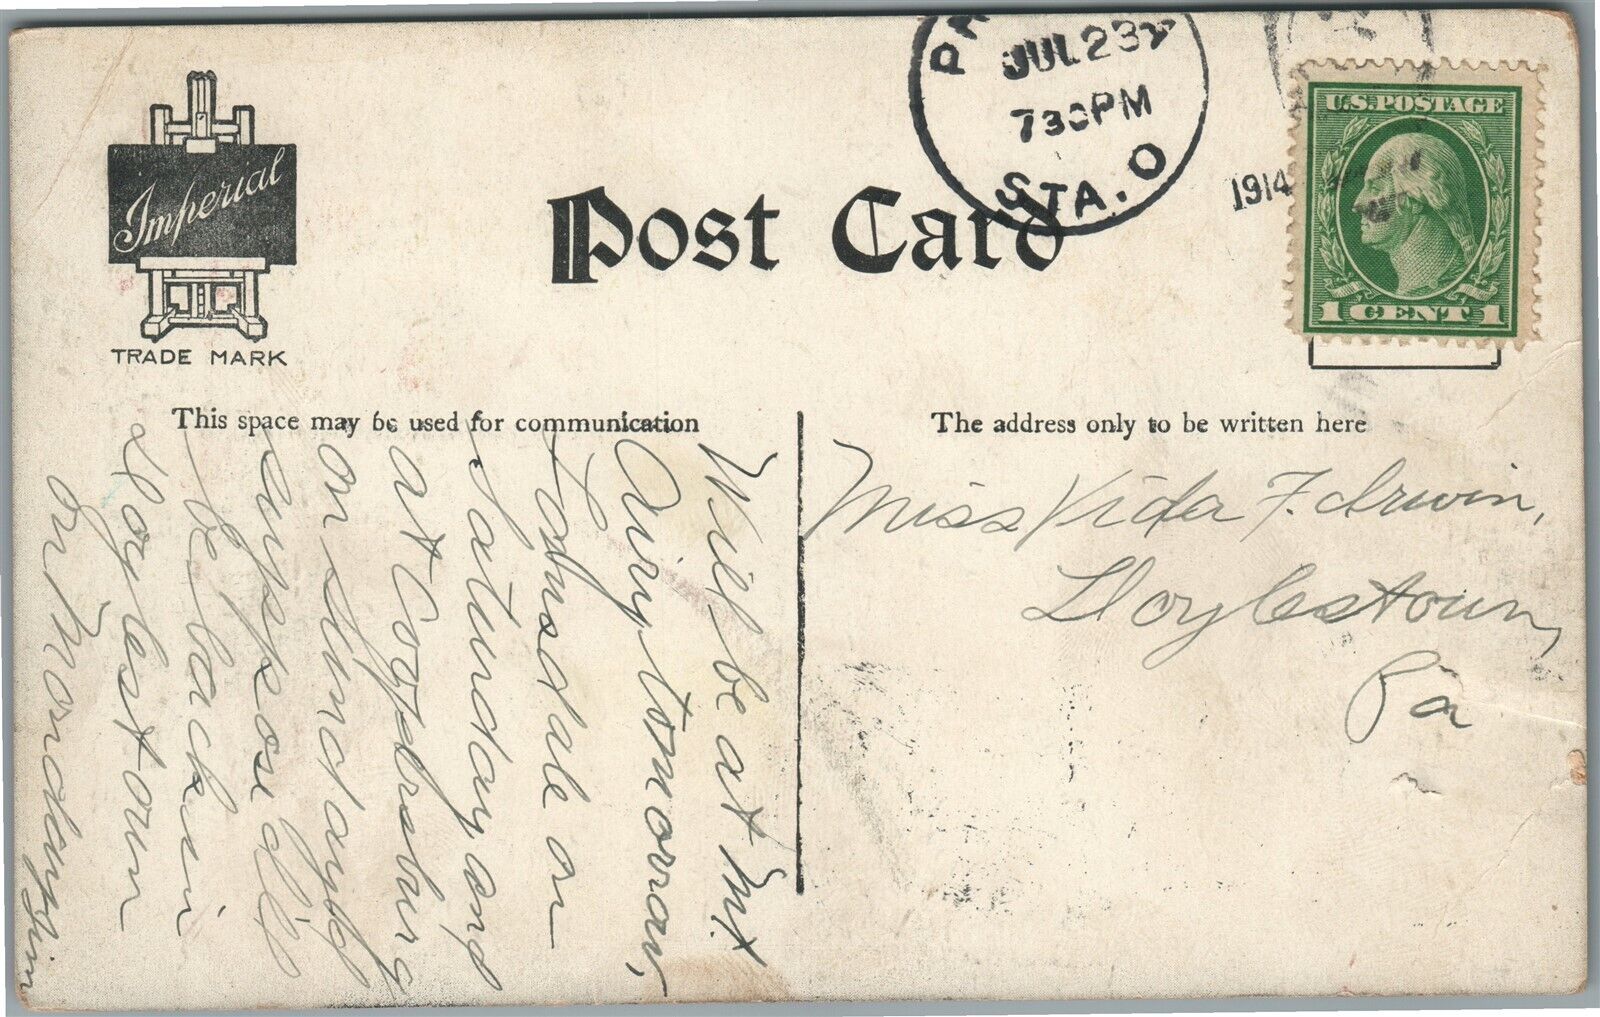 Imperial
TRADE MARK
Post Card
PA
JUL 23
730PM
STA. O
1914
U.S. POSTAGE
1 CENT 1
This space may be used for communication
The address only to be written here
Will be at Mt
Airy tomorrow,
Lansdale on
Saturday and
at Coopersburg
on Sunday
suppose I'll
be back in
Doylestown
on Monday. Jim
Miss Vida F. Irwin,
Doylestown,
Pa